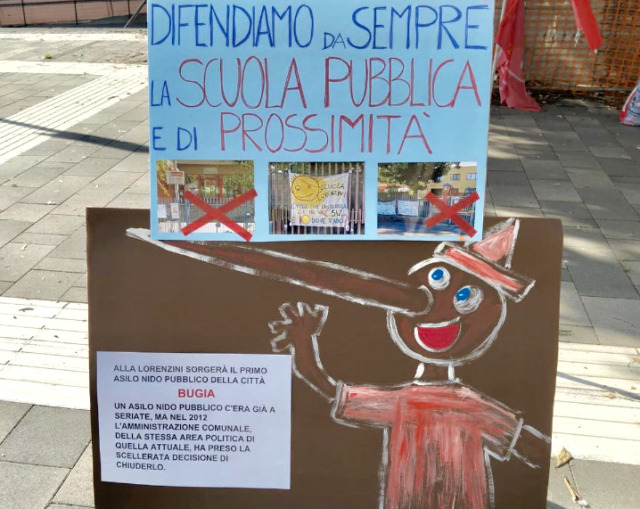 DIFENDIAMO DA SEMPRE
LA SCUOLA PUBBLICA
E DI PROSSIMITÀ
SCUOLA
DOVE VADO?
ALLA LORENZINI SORGERÀ IL PRIMO
ASILO NIDO PUBBLICO DELLA CITTÀ
BUGIA
UN ASILO NIDO PUBBLICO C'ERA GIÀ A
SERIATE, MA NEL 2012
L'AMMINISTRAZIONE COMUNALE,
DELLA STESSA AREA POLITICA DI
QUELLA ATTUALE, HA PRESO LA
SCELLERATA DECISIONE DI
CHIUDERLO.